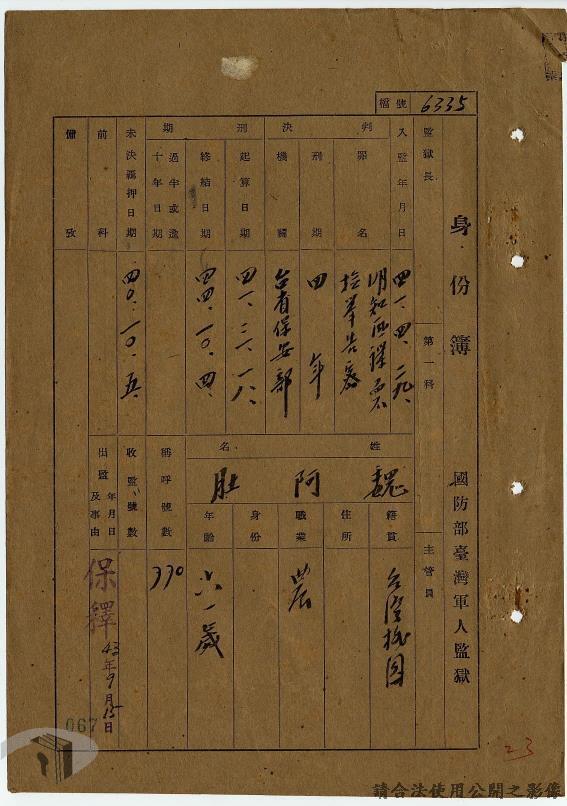 檔號 6335
身份簿
國防部臺灣軍人監獄
監獄長
第一科
主管員
入監年月日 四一、四、二九、
判決
罪名 明知匪諜而不檢舉告密
刑期 四年
機關 台省保安部
刑期
起算日期
終結日期 四四、一〇、四、
過半或逾十年日期
未決羈押日期 四〇、一〇、五、
前科
備攷
姓名 魏阿肚
籍貫 台灣桃園
住所
職業 農
身份
年齡 六一歲
稱呼號數 770
收監號數
出監年月日及事由 保釋 43年9月15日
067
23
請合法使用公開之影像